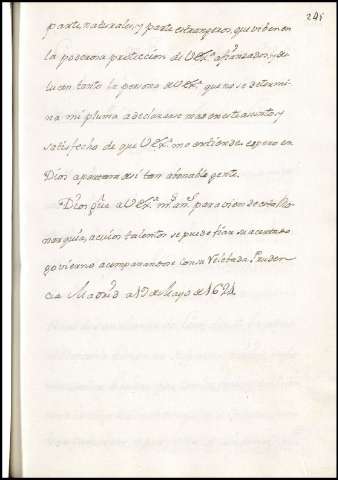 241
parte naturales, y parte estrangeros, que viden en
la poderosa proteccion de VEx.ª afianzados, y de
lucen tanto la persona de VEx.ª que no se determi
na mi pluma a declararse mas en este asunto, y
satisfecho de que VEx.ª me entiende, espero en
Dios apartara asi tan abonable gente.
Dios g.e a VEx.ª m.s an.s para vien de esta Mo
narquia, a cuios talentos se puede fiar su acertado
govierno acompañandose con su Prudên
cia Madrid a 17 de Mayo de 1621.